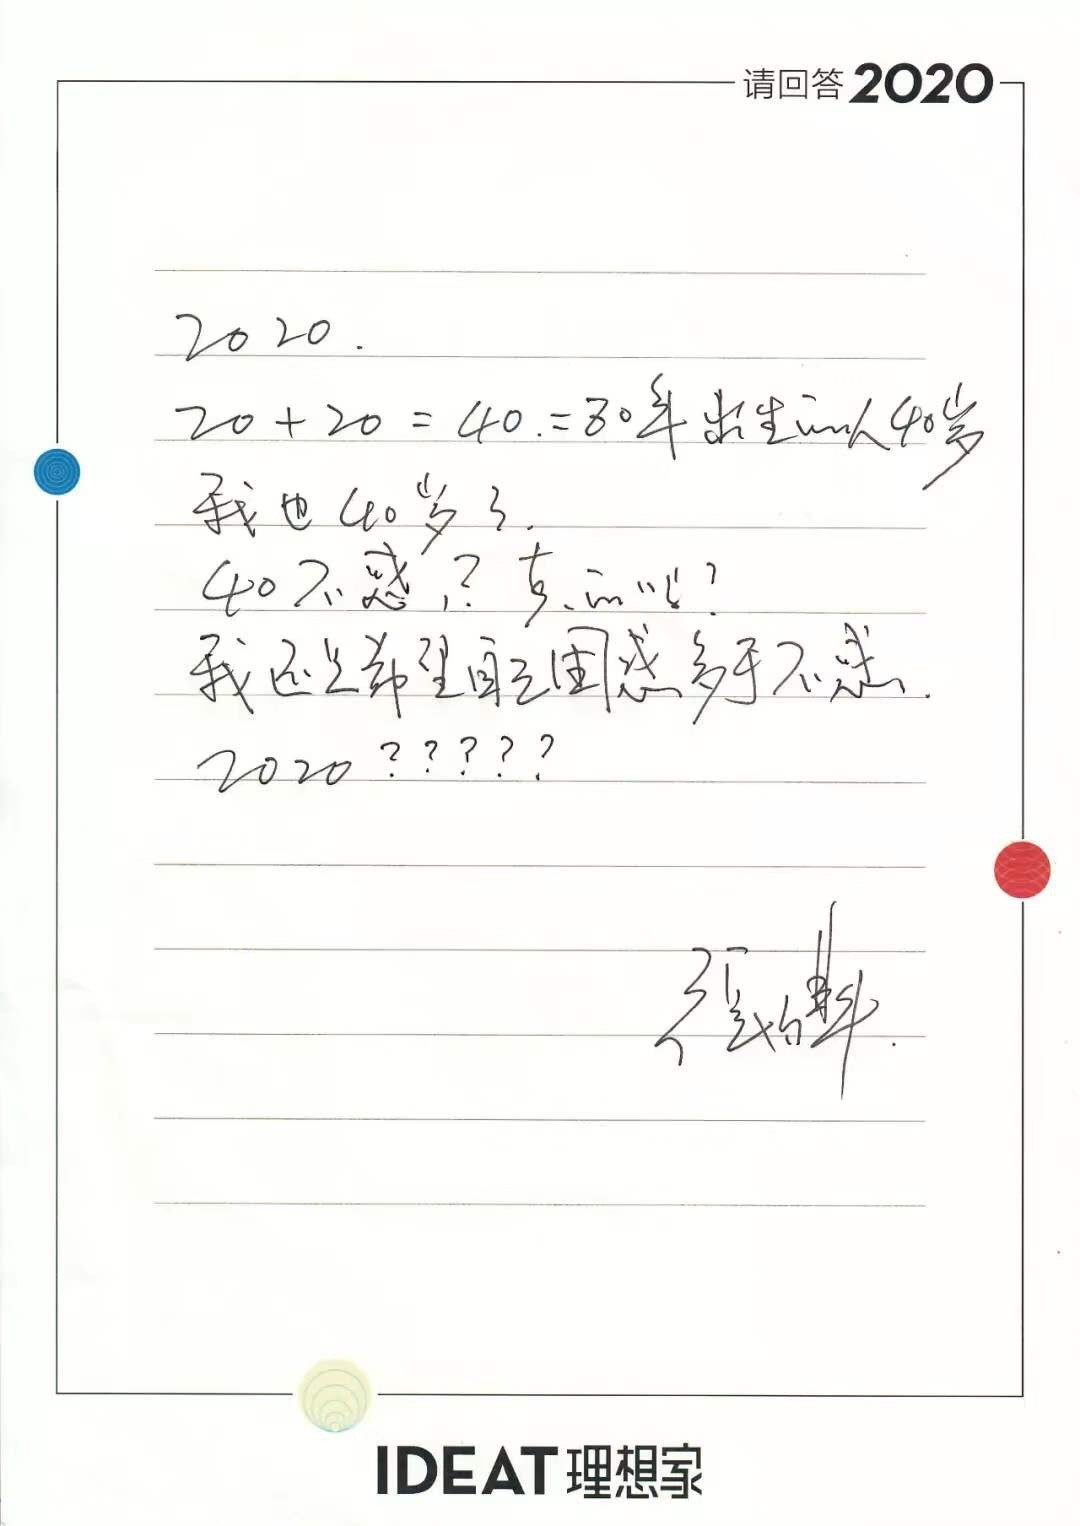 请回答2020
2020.
20+20=40.=80年出生的人40岁
我也40岁了.
40不惑,?真的吗?
我还是希望自己困惑多于不惑.
2020?????
IDEAT理想家